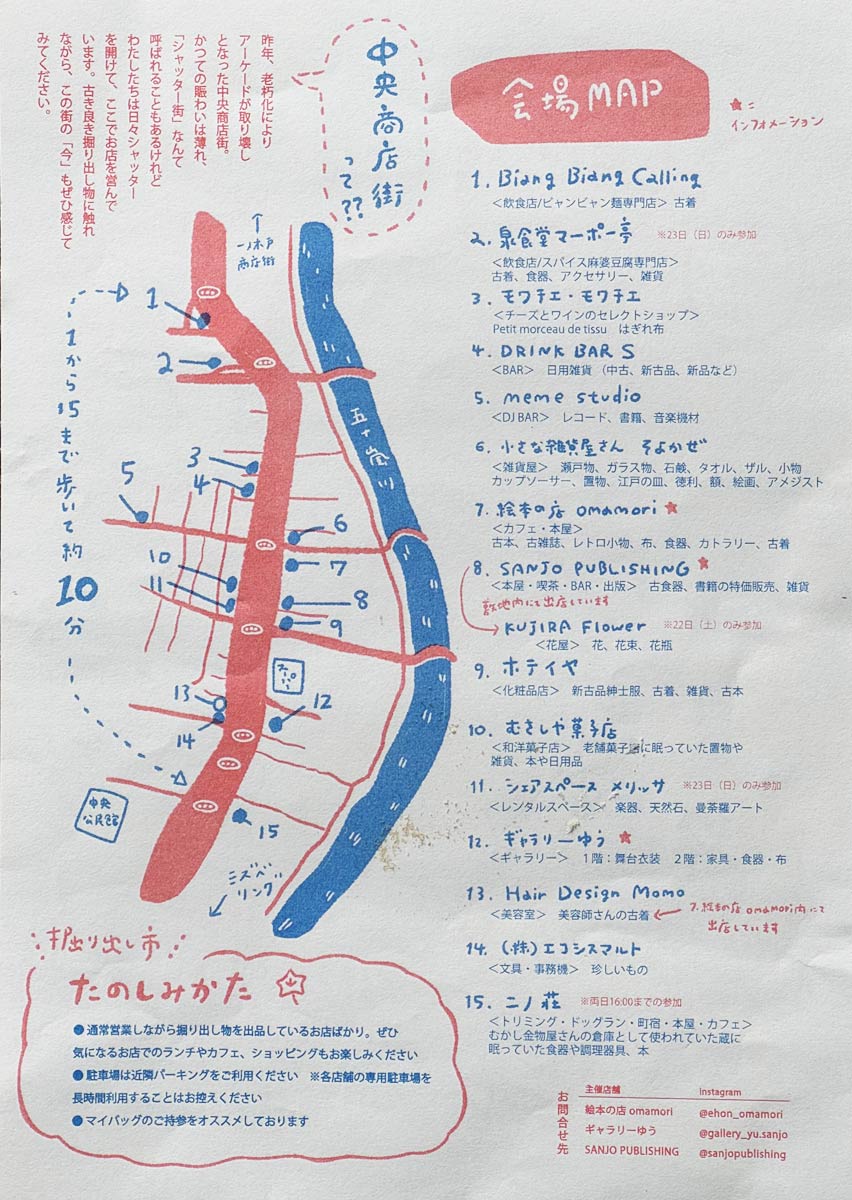 昨年、老朽化により
アーケードが取り壊し
となった中央商店街。
かつての賑わいは薄れ、
「シャッター街」なんて
呼ばれることもあるけれど
わたしたちは日々シャッター
を開けて、ここでお店を営んで
います。古き良き掘り出し物に触れ
ながら、この街の「今」もぜひ感じて
みてください。
中央商店街
って??
会場MAP
★=
インフォメーション
↑
一ノ木戸
商店街
1から15まで歩いて約
10分
1
2
3
4
5
6
7
8
9
10
11
12
13
14
15
五十嵐川
スーパー
中央
公民館
ミズベ
リング
1. Biang Biang Calling
<飲食店/ビャンビャン麺専門店> 古着
2. 泉食堂マーボー亭 ※23日(日)のみ参加
<飲食店/スパイス麻婆豆腐専門店>
古着、食器、アクセサリー、雑貨
3. モワチエ・モワチエ
<チーズとワインのセレクトショップ>
Petit morceau de tissu はぎれ布
4. DRINK BAR S
<BAR> 日用雑貨(中古、新古品、新品など)
5. meme studio
<DJ BAR> レコード、書籍、音楽機材
6. 小さな雑貨屋さん そよかぜ
<雑貨屋> 瀬戸物、ガラス物、石鹸、タオル、ザル、小物
カップソーサー、置物、江戸の皿、徳利、額、絵画、アメジスト
7. 絵本の店 omamori ★
<カフェ・本屋>
古本、古雑誌、レトロ小物、布、食器、カトラリー、古着
8. SANJO PUBLISHING ★
<本屋・喫茶・BAR・出版> 古食器、書籍の特価販売、雑貨
敷地内にて出店しています
KUJIRA Flower ※22日(土)のみ参加
<花屋> 花、花束、花瓶
9. ホテイヤ
<化粧品店> 新古品紳士服、古着、雑貨、古本
10. むさしや菓子店
<和洋菓子店> 老舗菓子店に眠っていた置物や
雑貨、本や日用品
11. シェアスペース メリッサ ※23日(日)のみ参加
<レンタルスペース> 楽器、天然石、曼荼羅アート
12. ギャラリーゆう ★
<ギャラリー> 1階:舞台衣装 2階:家具・食器・布
13. Hair Design Momo
<美容室> 美容師さんの古着
7. 絵本の店 omamori内にて
出店しています
14. (株)エコシスマルト
<文具・事務機> 珍しいもの
15. 二ノ荘 ※両日16:00までの参加
<トリミング・ドッグラン・町宿・本屋・カフェ>
むかし金物屋さんの倉庫として使われていた蔵に
眠っていた食器や調理器具、本
掘り出し市
たのしみかた
●通常営業しながら掘り出し物を出品しているお店ばかり。ぜひ
気になるお店でのランチやカフェ、ショッピングもお楽しみください
●駐車場は近隣パーキングをご利用ください ※各店舗の専用駐車場を
長時間利用することはお控えください
●マイバッグのご持参をオススメしております
お問合せ先
主催店舗 instagram
絵本の店 omamori @ehon_omamori
ギャラリーゆう @gallery_yu.sanjo
SANJO PUBLISHING @sanjopublishing